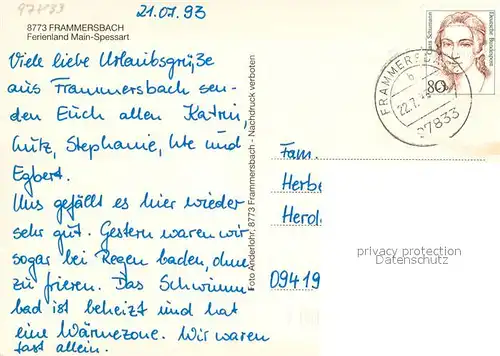 97833
21.07.93
8773 FRAMMERSBACH
Ferienland Main-Spessart
Viele liebe Urlaubsgrüße
aus Frammersbach sen-
den Euch allen Katrin,
Lutz, Stephanie, Ute und
Egbert.
Uns gefällt es hier wieder
sehr gut. Gestern waren wir
sogar bei Regen baden, ohne
zu frieren. Das Schwimm
bad ist beheizt und hat
eine Wärmezone. Wir waren
fast allein.
Foto Anderlohr, 8773 Frammersbach - Nachdruck verboten
Schumann
Deutsche Bundespost
80
FRAMMERSBACH
b
22.7.
97833
Fam.
Herbe
Herol
09419
privacy protection
Datenschutz